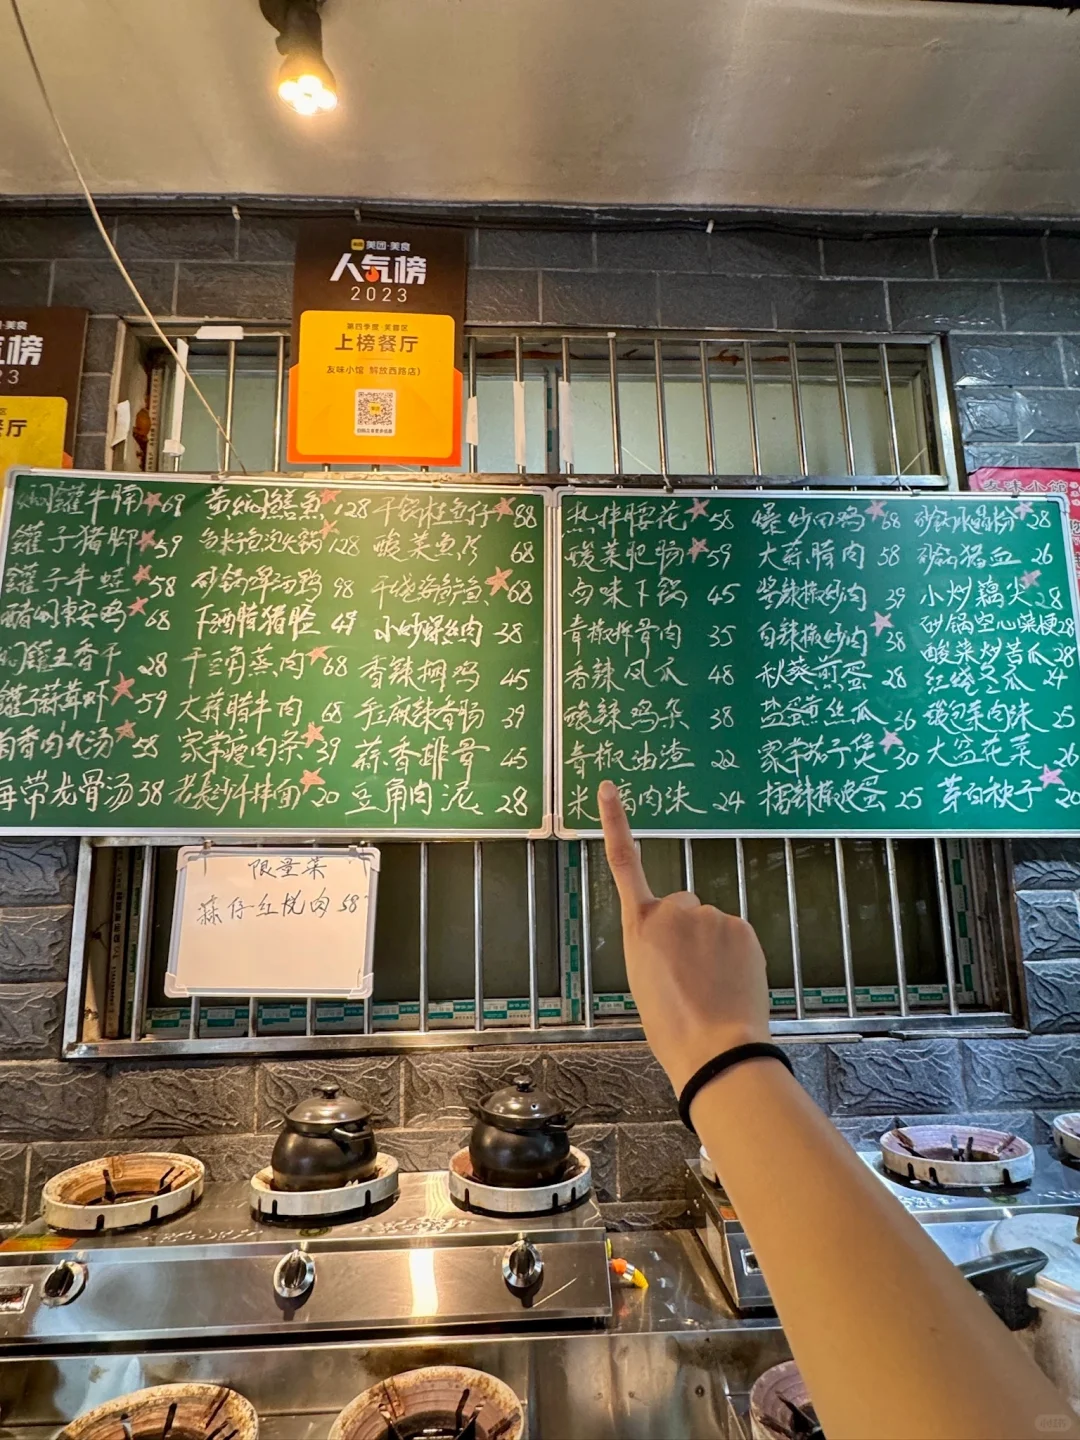 美团·美食
人气榜
2023
第四季度·芙蓉区
上榜餐厅
友味小馆 解放西路店)
美食
气榜
餐厅
友味小馆
牛腩 69
罐子猪脚 59
罐子牛蛙 58
东安鸡 68
五香干 28
59
肉丸汤 58
海带龙骨汤 38
黄焖鳝鱼 128
鱼籽鱼泡火锅 128
砂锅啤酒鸭 98
下酒腊猪脸 49
干豆角蒸肉 68
大蒜腊牛肉 68
家常瘦肉条 39
老长沙伴面 20
干锅桂鱼仔 68
酸菜鱼 68
68
小炒螺丝肉 38
香辣鸡 45
手工麻辣香肠 39
蒜香排骨 45
豆角肉泥 28
热拌腰花 58
酸菜肥肠 59
卤味下锅 45
青椒拌骨肉 35
香辣凤爪 48
酸辣鸡杂 38
青椒油渣 22
米 腐肉沫 24
爆炒田鸡 68
大蒜腊肉 58
浆辣椒炒肉 39
白辣椒炒肉 38
秋葵煎蛋 28
盐蛋丝瓜 26
家常茄子煲 30
擂辣椒皮蛋 25
砂锅 粉 28
砂锅猪血 26
小炒藕尖 28
砂锅空心菜梗 28
酸菜炒苦瓜 28
红烧冬瓜 24
酸包菜肉沫 25
大盆花菜 26
茅白秧子 20
限量菜
蒜仔红烧肉 58